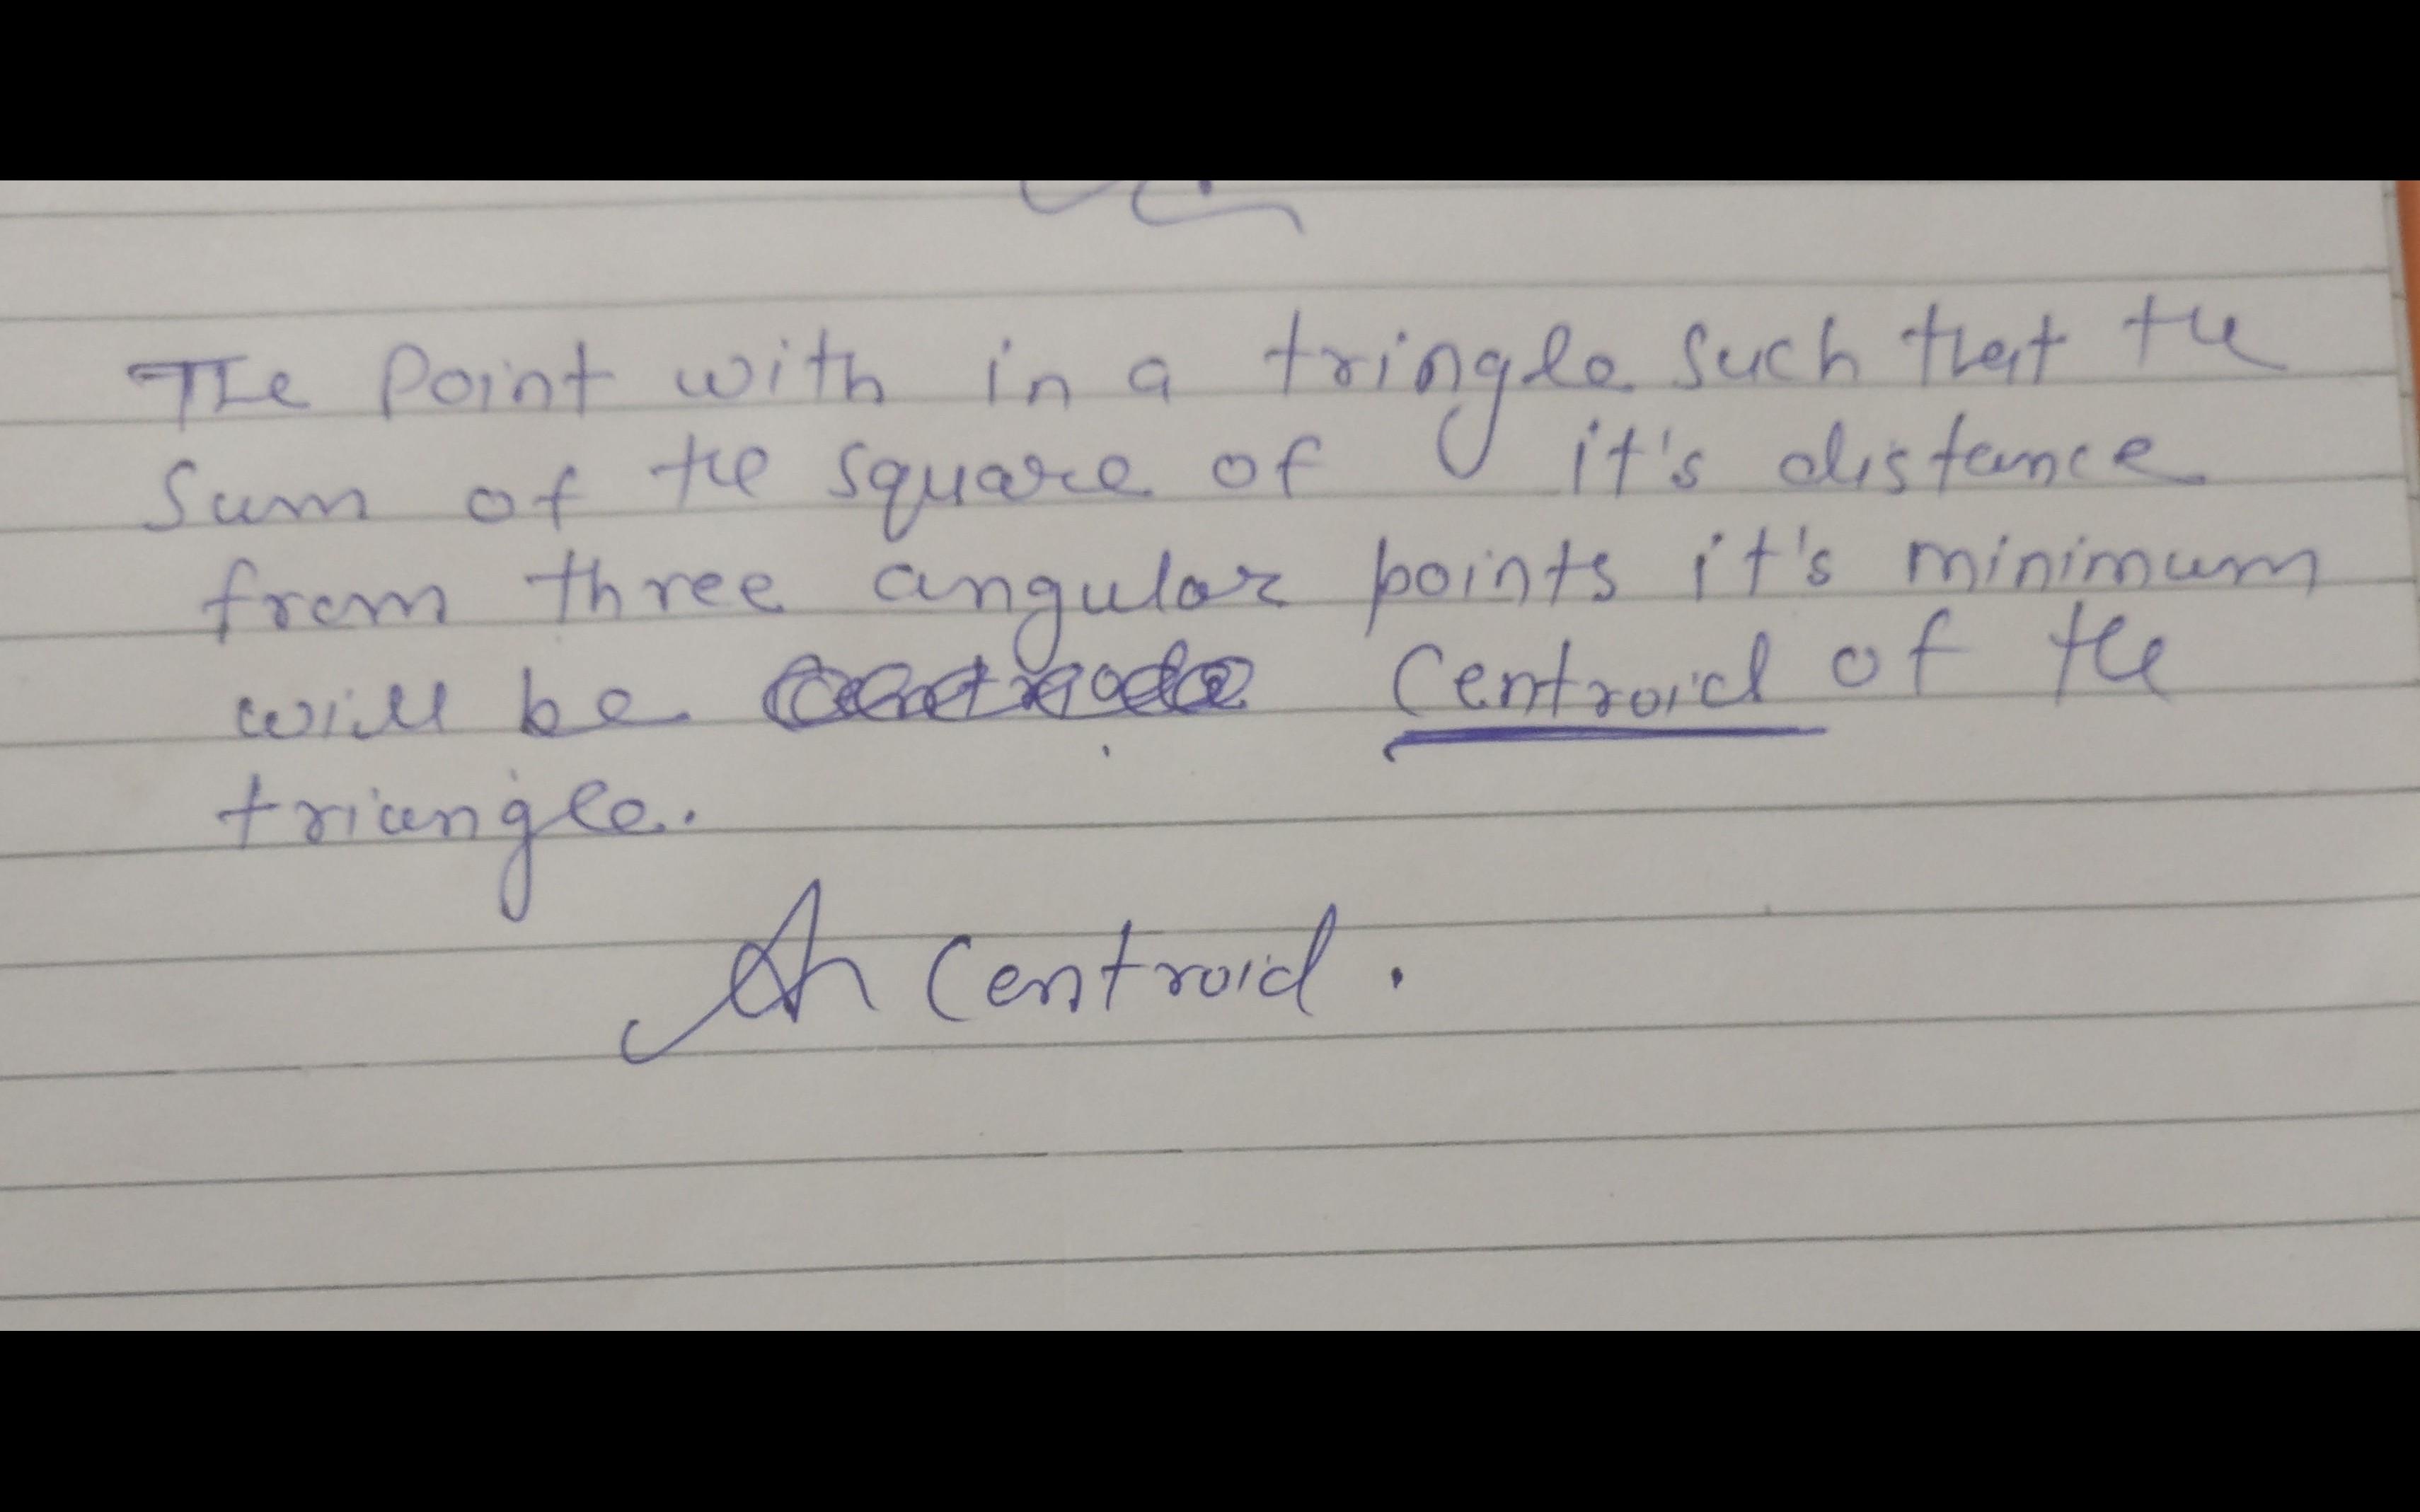 The Point with in a tringle such that the
Sum of the square of it's distance
from three angular points it's minimum
will be Centroid of the
triangle.
An Centroid.